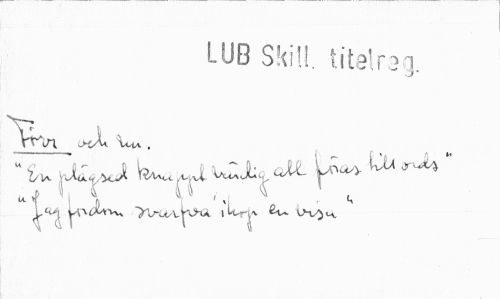 LUB Skill. titelreg.
Förr och nu.
"En plägsed knappt värdig att föras till ords"
"Jag fordom svarfva' ihop en visa"